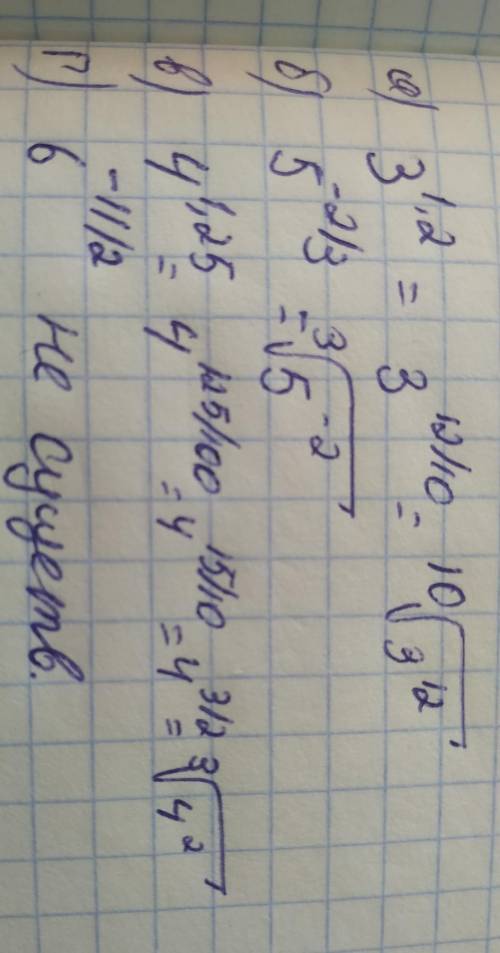 а) 3^1,2 = 3^12/10 = ¹⁰√3^12
б) 5^-2/3 = ³√5^-2
в) 4^1,25 = 4^125/100 = 4^15/10 = 4^3/2 = ³√4^2
г) 6^-11/2 не существ.